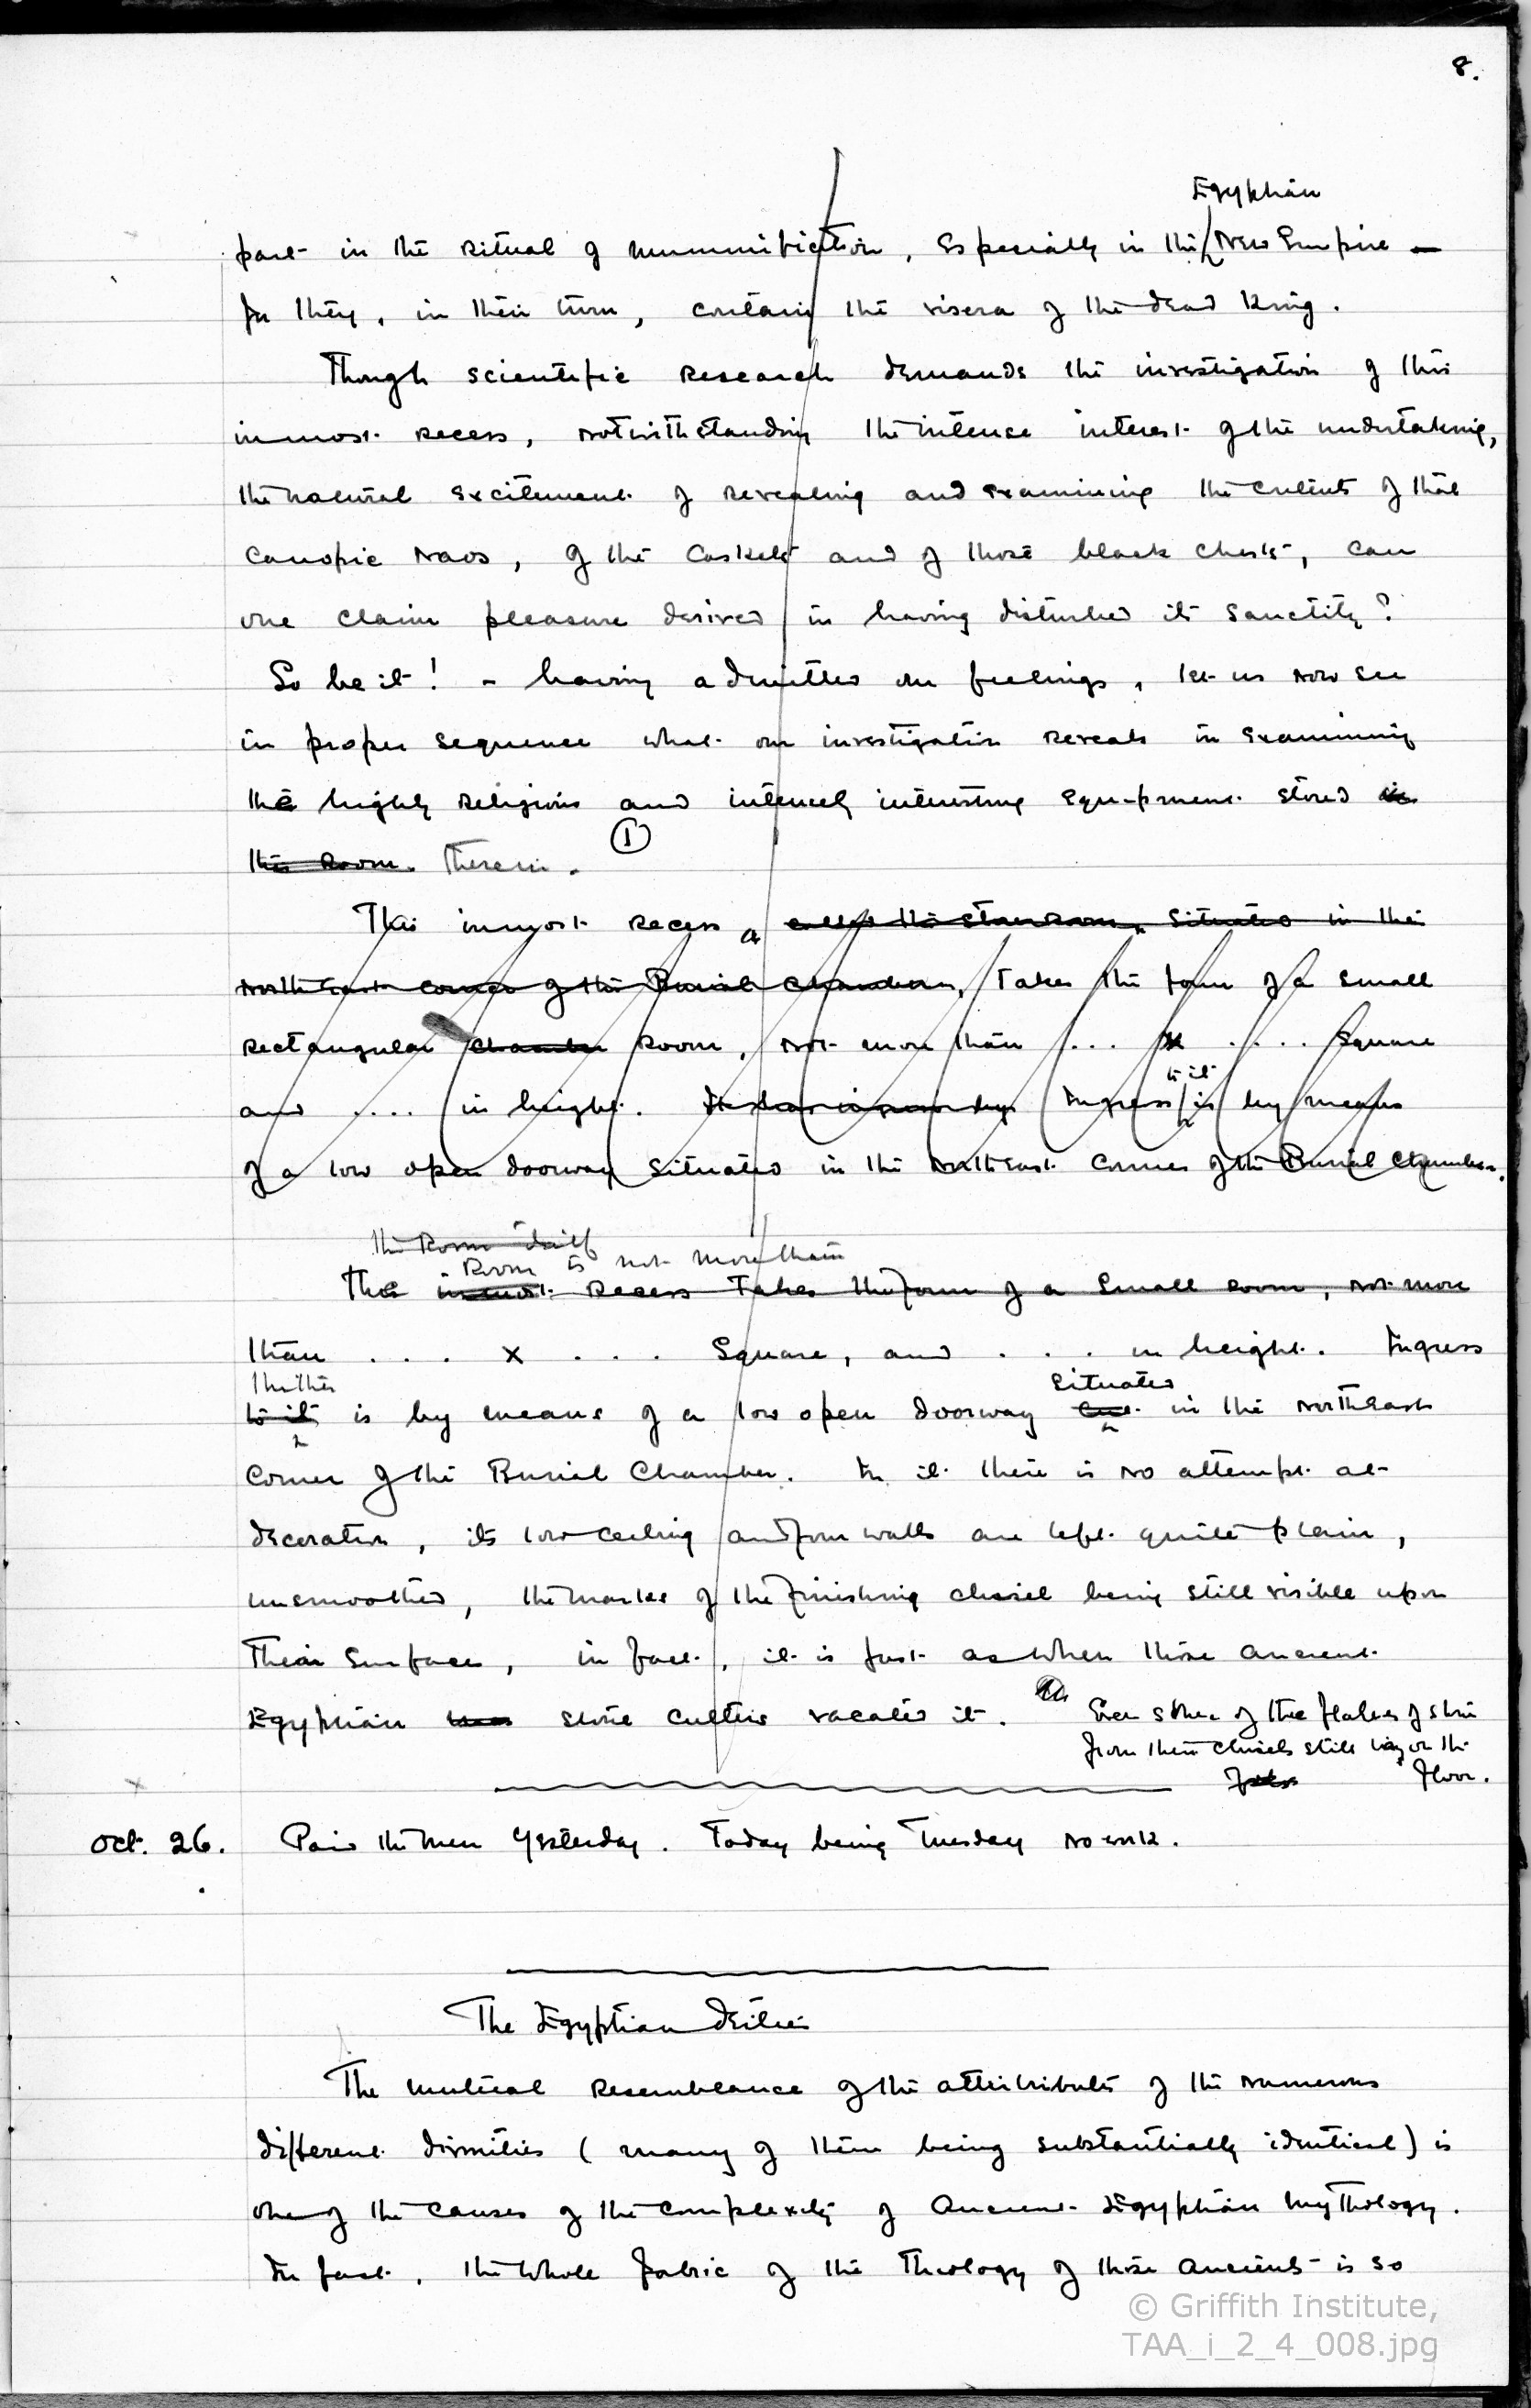 8.
Egyptian
part in the ritual of mummification, especially in the New Empire —
for they, in their turn, contain the visera of the dead King.
Though scientific research demands the investigation of this
inmost recess, notwithstanding the intense interest of the undertaking,
the natural excitement of revealing and examining the contents of that
canopic naos, of the caskets and of those black chests, can
one claim pleasure derived in having disturbed its sanctity?
So be it! - having admitted our feelings, let us now see
in proper sequence what our investigation reveals in examining
the highly religious and intensely interesting equipment stored in
this room. therein.
①
This inmost recess, called the storeroom, situated in the
North East corner of the Burial Chamber, takes the form of a small
rectangular chamber room, not more than ... x .... square
to it
and .... in height. Ingress is by means
of a low open doorway situated in the North East corner of the Burial Chamber.
the Room itself
Room is not more than
The inmost recess takes the form of a small room, not more
than . . . x . . . square, and . . . in height. Ingress
thither situated
to it is by means of a low open doorway cut in the North East
corner of the Burial Chamber. In it there is no attempt at
decoration, its low ceiling and four walls are left quite plain,
unsmoothed, the marks of the finishing chisel being still visible upon
their surfaces, in fact, it is just as when those ancient
Egyptian stone cutters vacated it. Even some of the flakes of stone
from their chisels still lay on the
floor.
Oct. 26. Paid the men yesterday. Today being Tuesday no work.
The Egyptian Deities
The mutual resemblance of the attributes of the numerous
different divinities (many of them being substantially identical) is
one of the causes of the complexity of Ancient Egyptian mythology.
In fact, the whole fabric of the Theology of those ancients is so
© Griffith Institute,
TAA_i_2_4_008.jpg